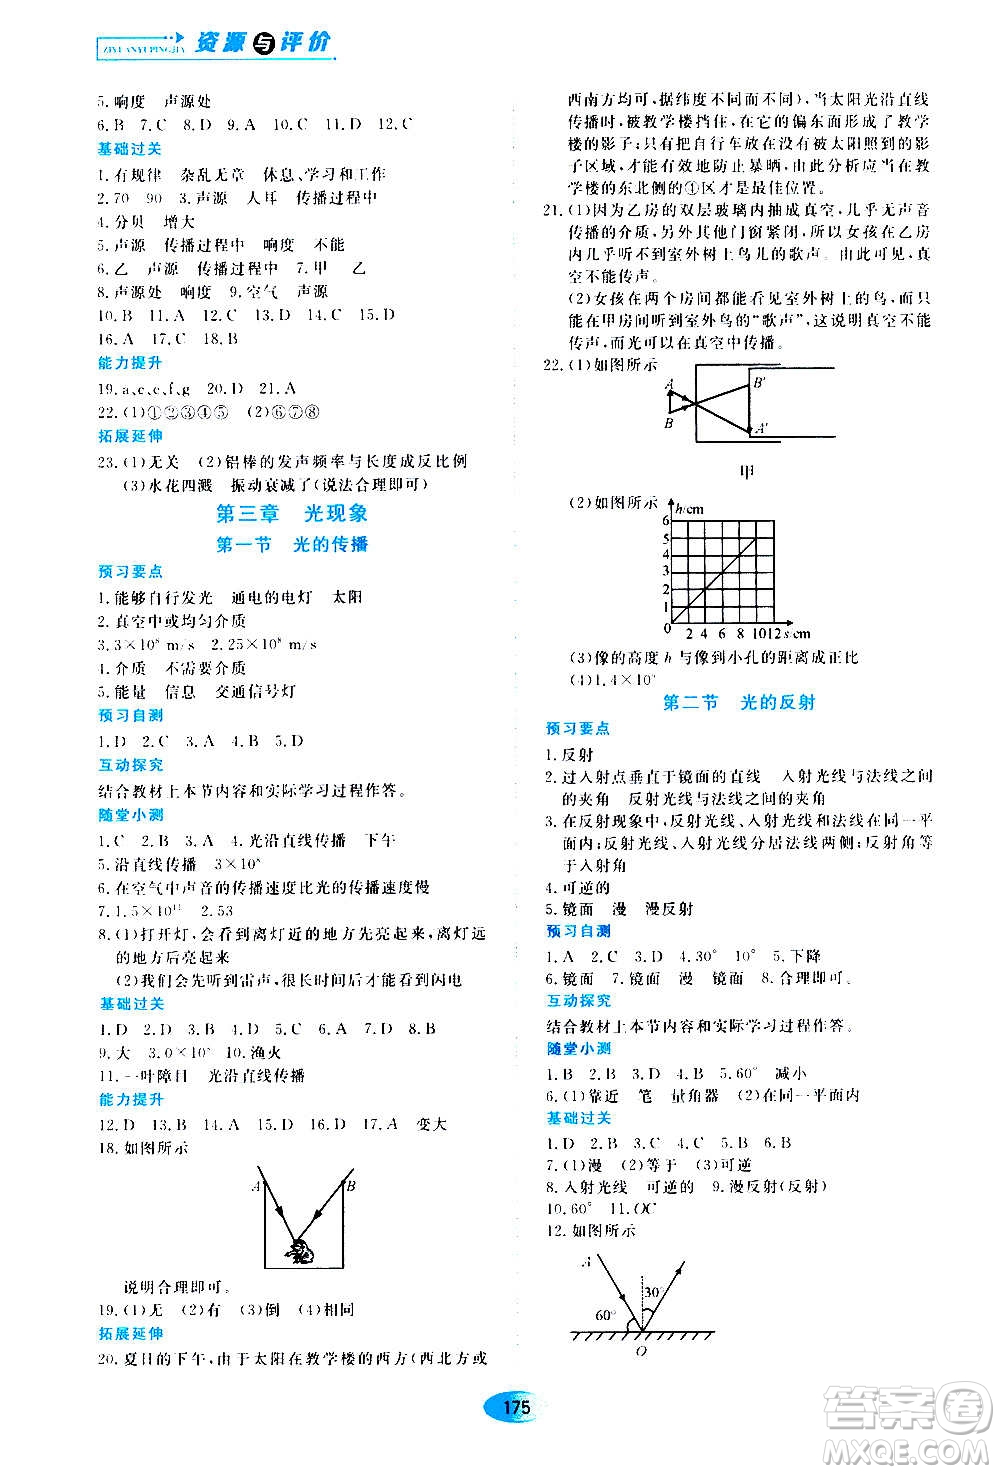 ZIYUANYUPINGJIA 资源与评价
5.响度 声源处
6.B 7.C 8.D 9.A 10.C 11.C 12.C
基础过关
1.有规律 杂乱无章 休息、学习和工作
2.70 90 3.声源 人耳 传播过程中
4.分贝 增大
5.声源 传播过程中 响度 不能
6.乙 声源 传播过程中 7.甲 乙
8.声源处 响度 9.空气 声源
10.B 11.A 12.C 13.D 14.A 15.C
16.A 17.C 18.B
能力提升
19.a、c、e、f、g 20.D 21.A
22.(1)①②③④⑤ (2)⑥⑦⑧
拓展延伸
23.(1)无关 (2)铝棒的发声频率与长度成反比例
(3)水花四溅 振动衰减了(说法合理即可)
第三章 光现象
第一节 光的传播
预习要点
1.能够自行发光 通电的电灯 太阳
2.真空中或均匀介质
3.3×10⁸ m/s 2.25×10⁸ m/s
4.介质 不需要介质
5.能量 信息 交通信号灯
预习自测
1.D 2.C 3.A 4.B 5.D
互动探究
结合教材上本节内容和实际学习过程作答。
随堂小测
1.C 2.C 3.A 4.光沿直线传播 下午
5.沿直线传播 3×10⁸
6.在空气中声音的传播速度比光的传播速度慢
7.1.5×10¹¹ 2.53
8.(1)打开灯,会看到离灯近的地方先亮起来,离灯远
的地方后亮起来
(2)我们会先听到雷声,很长时间后才能看到闪电
基础过关
1.D 2.D 3.B 4.D 5.C 6.C 7.D 8.B
9.大 3.0×10⁸ 10.渔火
11.一叶障目 光沿直线传播
能力提升
12.D 13.C 14.D 15.A 16.D 17.A 变大
18.如图所示
A B
说明合理即可。
19.(1)无 (2)有 (3)倒 (4)相同
拓展延伸
20.夏日的下午,由于太阳在教学楼的西方(西北方或
西南方均可,据纬度不同而不同),当太阳光沿直线
传播时,被教学楼挡住,在它的偏东面形成了教学楼
的影子;只有将自行车放在没有被太阳照到的影
子区域,才能有效地防止暴晒,由此分析应当在教
学楼的东北侧的①区才是最佳位置。
21.(1)因为乙房的双层玻璃内抽成真空,几乎无声音
传播的介质,另外其他门窗紧闭,所以女孩在乙房
内几乎听不到室外树上鸟儿的歌声,这说明,真
空不能传声。
(2)女孩在两个房间都能看见室外树上的鸟,而
在甲房间听到室外鸟的“歌声”,这说明真空不能
传声,而光可以在真空中传播。
22.(1)如图所示
A B B′ A′
甲
(2)如图所示
h/cm
6
5
4
3
2
1
0 2 4 6 8 10 12 s/cm
(3)像的高度h与像到小孔的距离成正比
第二节 光的反射
预习要点
1.反射
2.过入射点垂直于镜面的直线 入射光线与法线之间
的夹角 反射光线与法线之间的夹角
3.在反射现象中,反射光线、入射光线和法线在同一平
面内;反射光线、入射光线分居法线两侧;反射角等
于入射角
4.可逆的
5.镜面 漫 漫反射
预习自测
1.A 2.C 3.D 4.30° 10° 5.下降
6.镜面 7.镜面 漫 镜面 8.合理即可。
互动探究
结合教材上本节内容和实际学习过程作答。
随堂小测
1.B 2.C 3.D 4.B 5.60° 减小
6.(1)靠近 笔 量角器 (2)在同一平面内
基础过关
1.D 2.B 3.C 4.C 5.B 6.B
7.(1)漫 (2)等于 (3)可逆
8.入射光线 可逆的 9.漫反射(反射)
10.60° 11.OC
12.如图所示
A 30° 60° O
175
答案圈
MXQE.COM